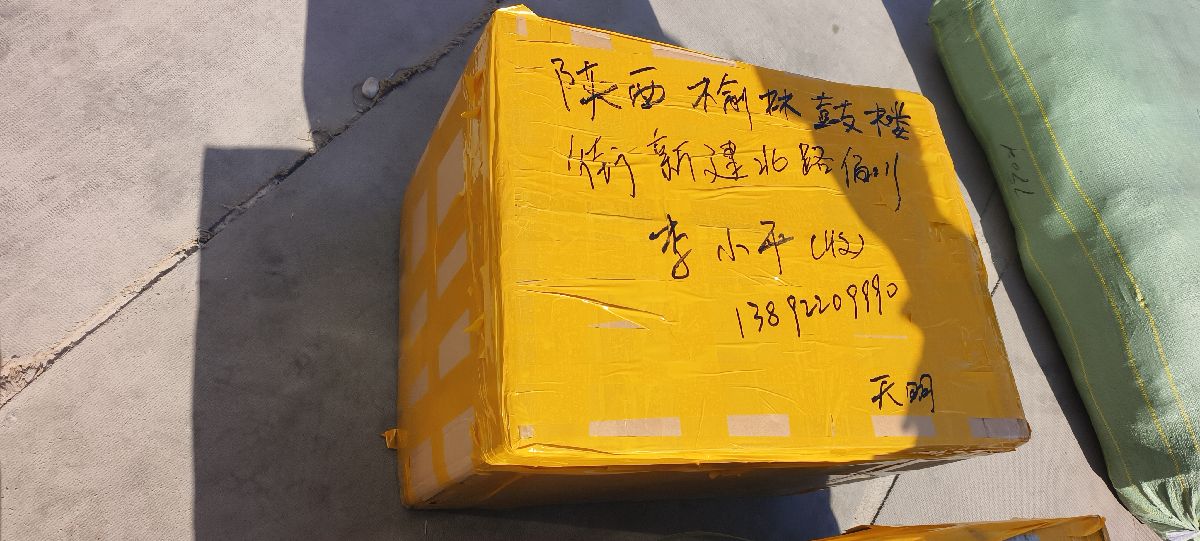 陕西榆林鼓楼
街新建北路佰川
李小平(收)
13892209990
天明